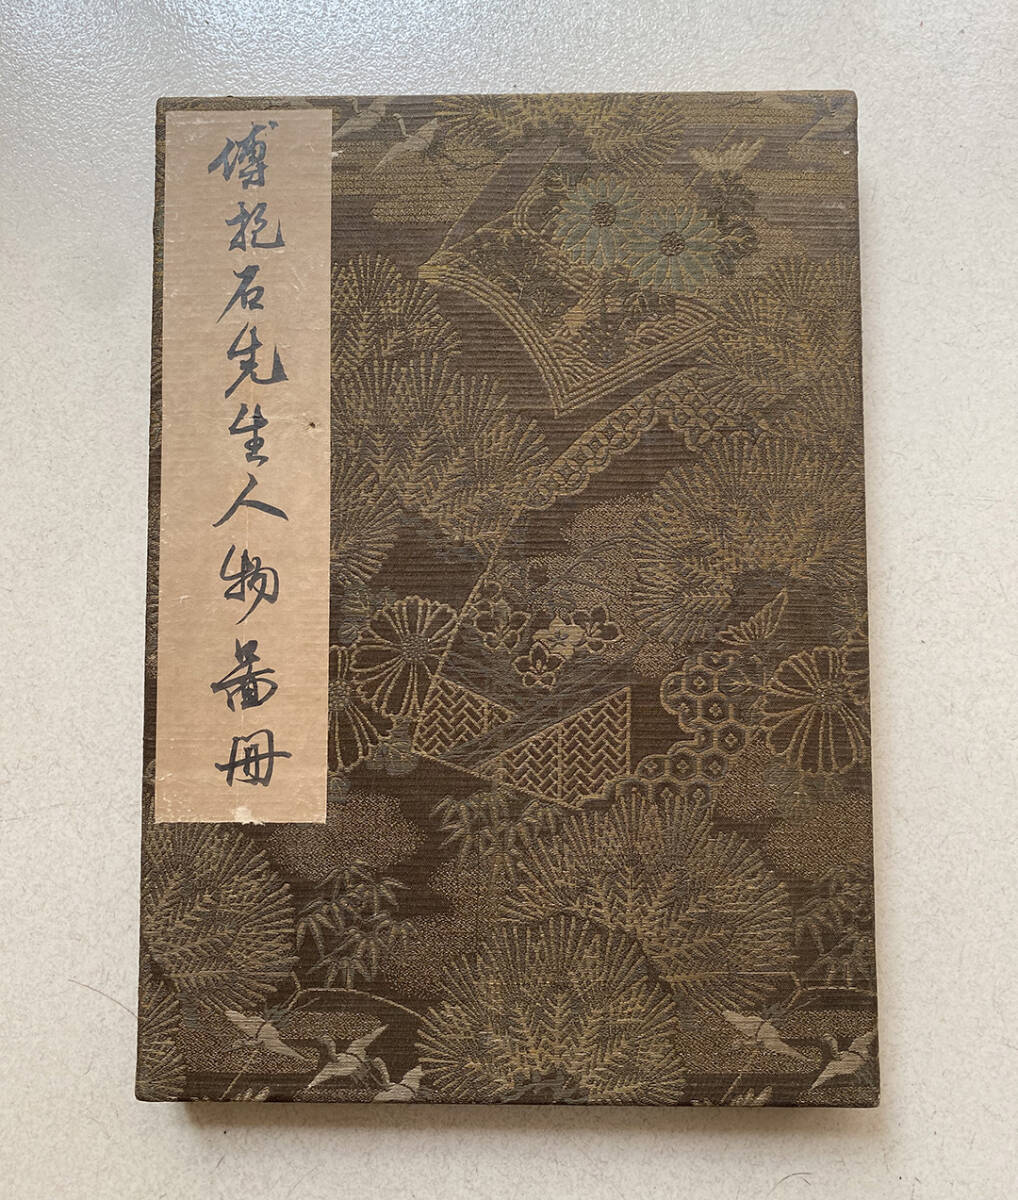 傅抱石先生人物畵冊